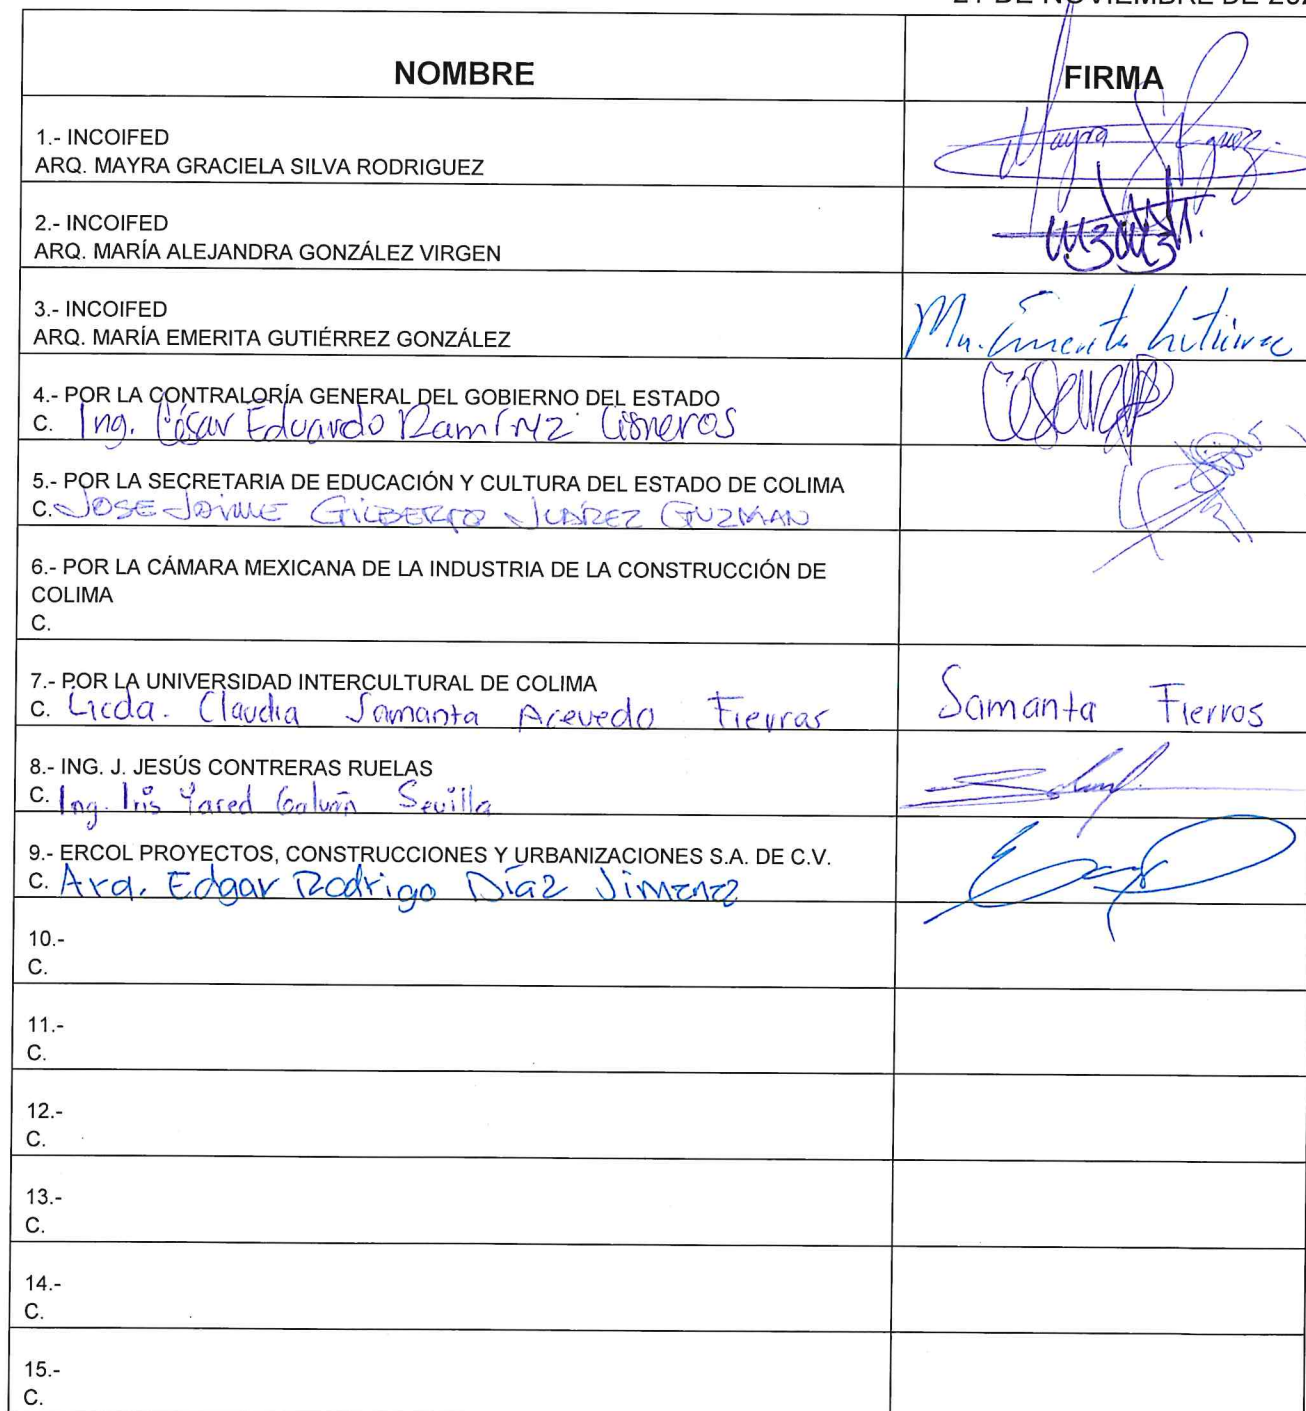 NOMBRE FIRMA
1.- INCOIFED
ARQ. MAYRA GRACIELA SILVA RODRIGUEZ
Mayra
2.- INCOIFED
ARQ. MARÍA ALEJANDRA GONZÁLEZ VIRGEN
3.- INCOIFED
ARQ. MARÍA EMERITA GUTIÉRREZ GONZÁLEZ
Ma. Emerita
4.- POR LA CONTRALORÍA GENERAL DEL GOBIERNO DEL ESTADO
C. Ing. César Eduardo Ramírez Cisneros
5.- POR LA SECRETARIA DE EDUCACIÓN Y CULTURA DEL ESTADO DE COLIMA
C. JOSE JAIME GILBERTO JUÁREZ GUZMAN
6.- POR LA CÁMARA MEXICANA DE LA INDUSTRIA DE LA CONSTRUCCIÓN DE
COLIMA
C.
7.- POR LA UNIVERSIDAD INTERCULTURAL DE COLIMA
C. Licda. Claudia Samanta Acevedo Fierros Samanta Fierros
8.- ING. J. JESÚS CONTRERAS RUELAS
C. Ing. Iris Yared Galván Sevilla
9.- ERCOL PROYECTOS, CONSTRUCCIONES Y URBANIZACIONES S.A. DE C.V.
C. Arq. Edgar Rodrigo Díaz Jimenez
10.-
C.
11.-
C.
12.-
C.
13.-
C.
14.-
C.
15.-
C.